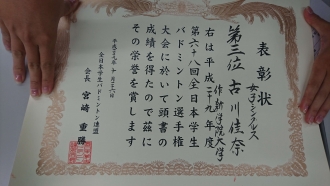 表彰状
女子シングルス
第三位 古川佳奈
作新学院大学
右は平成二十九年度
第六十八回全日本学生
バドミントン選手権
大会に於いて頭書の
成績を得たので茲に
その栄誉を賞します
平成二十九年十月二十六日
全日本学生バドミントン連盟
会長 宮崎重勝